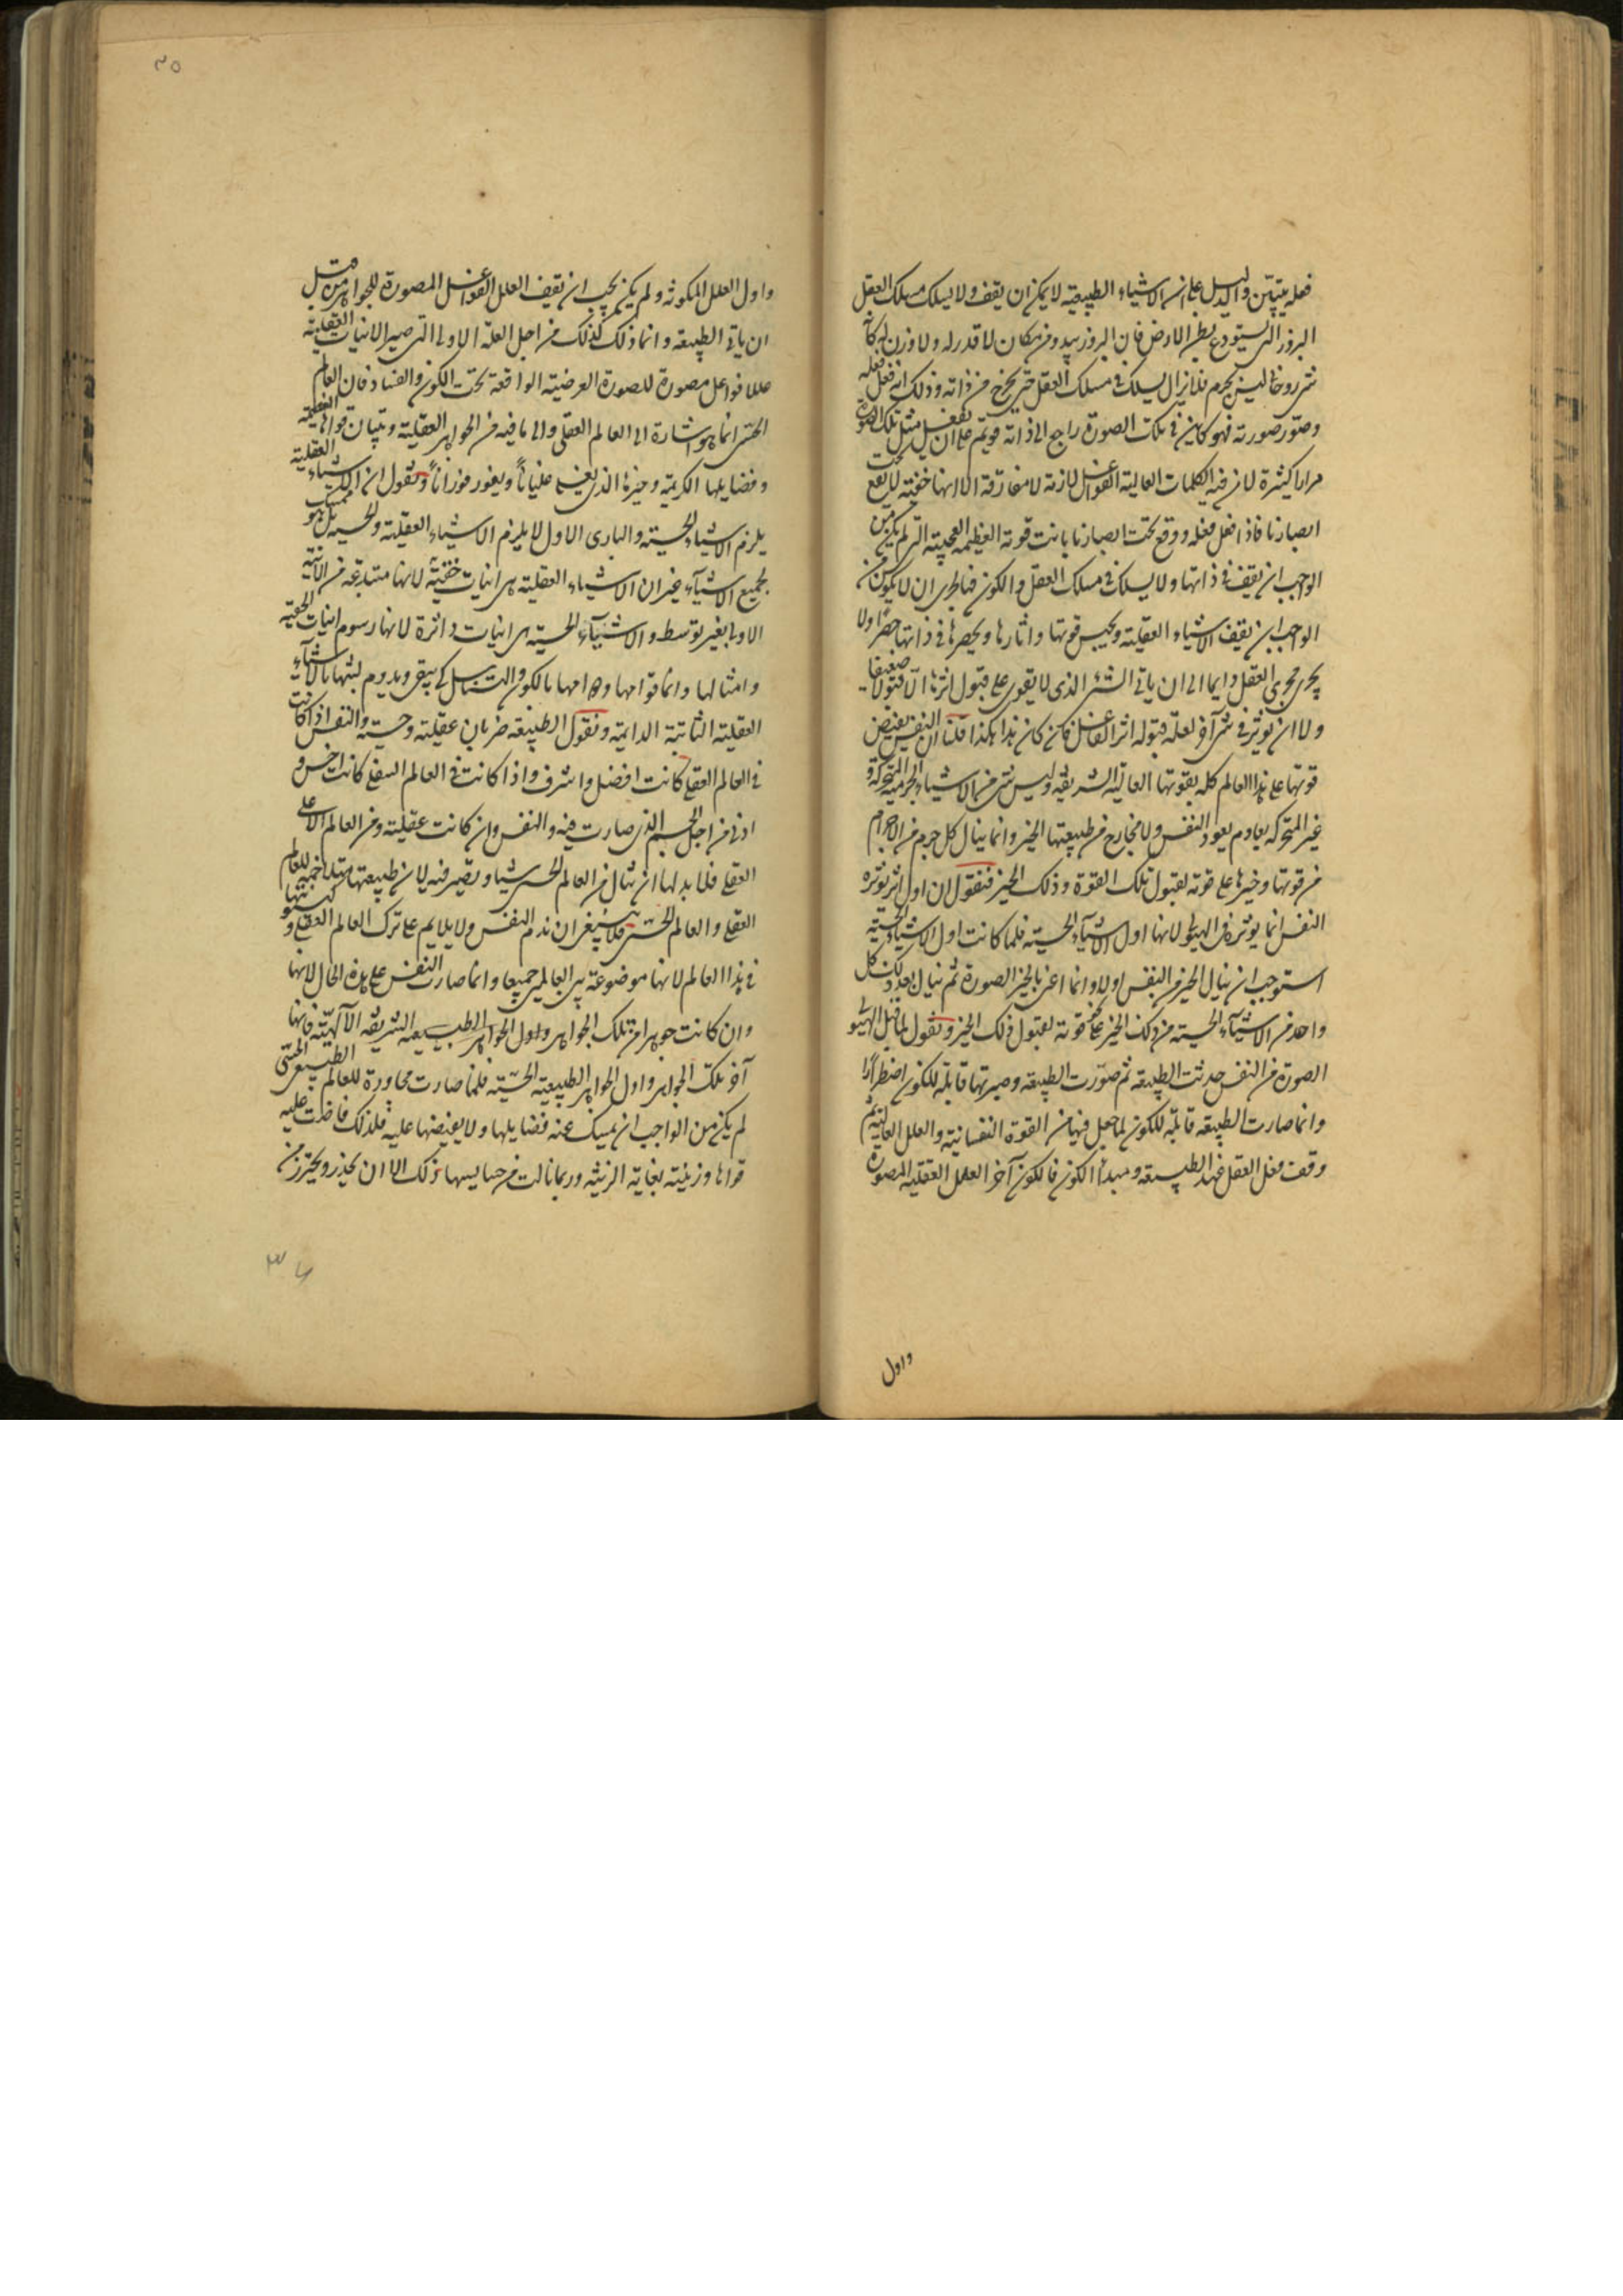 فعله يتبين والدليل على ان الاشياء الطبيعية لا يمكن ان يقف ولا يسلك مسلك العقل
البزور التى يستودع بطن الارض فان البزور يبدو من مكان لا قدر له ولا وزن له كانه
شى روحانى ليس بجرم فلا يزال يسلك فى مسلك العقل حتى يخرج من ذاته وذلك انه فعل فعله
وصور صورته فهو كاين فى تلك الصورة راجع الى ذاته قويم على ان يفعل مثل تلك الصورة
مرارا كثيرة لان فيه الكلمات العالية الفواعل لازمة لا مفارقة الا انها خفية لا يقع تحت
ابصارنا فاذا فعل فعله ووقع تحت ابصارنا بانت قوته العظيمة العجيبة التى لم يكن من
الواجب ان يقف فى ذاتها ولا يسلك فى مسلك العقل والكون فبالحرى ان لا يكون من
الواجب ان يقف الاشياء العقلية ويحبس قوتها واثارها ويحصرها فى ذاتها حصرا ولا
يجرى مجرى العقل دايما الى ان ياتى الشئ الذى لا يقوى على قبول اثرها الا قبولا ضعيفا
ولا ان يوثر فى شى آخر لعلة قبوله اثر الفاعل فان كان هذا هكذا قلنا ان النفس يفيض
قوتها على هذا العالم كله بقوتها العالية الشريفة وليس شى من الاشياء الجرمية المتحركة و
غير المتحركة بعادم بعود النفس ولا بخارج من طبيعتها الخير وانما ينال كل جرم من الاجرام
من قوتها وخيرها على قوته لقبول تلك القوة وذلك الخير فنقول ان اول اثر يوثره
النفس انما يوثره فى الهيولى لانها اول الاشياء الحسية فلما كانت اول الاشياء الحسية
استوجب ان ينال الخير من النفس اولا وانما اعنى بالخير الصورة ثم ينال بعد ذلك كل
واحد من الاشياء الحسية من ذلك الخير على نحو قوته لقبول ذلك الخير ونقول لما قبل الهيولى
الصورة من النفس حدثت الطبيعة ثم صورت الطبيعة وصيرتها قابلة للكون اضطرارا
وانما صارت الطبيعة قابلة للكون لما جعل فيها من القوة النفسانية والعلل العالية ثم
وقف فعل العقل عند الطبيعة ومبدأ الكون فالكون آخر العلل العقلية المصورة
واول
٣٥
واول العلل المكونه ولم يكن يجب ان تقف العلل الفواعل المصورة للجواهر من قبل
ان ياتى الطبيعة وانما ذلك كذلك من اجل العلة الاولى التى صير الانيات العقلية
عللا فواعل مصورة للصورة العرضية الواقعة تحت الكون والفساد فان العالم
الحسى انما هو اشارة الى العالم العقلى والى ما فيه من الجواهر العقلية وبيان قواها العظيمة
وفضايلها الكريمة وخيرها الذى يغلى غليانا ويفور فورانا ونقول ان الاشياء العقلية
يلزم الاشياء الحسية والبارى الاول لا يلزم الاشياء العقلية والحسية بل هو ممسك
لجميع الاشياء غير ان الاشياء العقلية هى انيات خفية لانها مبتدعة من الانية
الاولى بغير توسط والاشياء الحسية هى انيات داثرة لانها رسوم انيات الحقية
وامثالها وانما قوامها ودوامها بالكون والتناسل كى يبقى ويدوم لشبهها بالاشياء
العقلية الثابتة الدايمة ونقول الطبيعة ضربان عقلية وحسية والنفس اذا كانت
فى العالم العقلى كانت افضل واشرف واذا كانت فى العالم السفلى كانت اخس و
ادنى من اجل الجسم الذى صارت فيه والنفس وان كانت عقلية ومن العالم الاعلى
العقلى فلا بد لها ان ينال من العالم الحسى شيا ويصير فيه لان طبيعتها متلاخمة للعالم
العقلى والعالم الحسى فلا ينبغى ان نذم النفس ولا يلايم على ترك العالم العقلى وكينونتها
فى هذا العالم لانها موضوعة بين العالمين جميعا وانما صارت النفس على هذه الحال لانها
وان كانت جوهرا من تلك الجواهر واول الجواهر الطبيعيه الشريفه الآلهية فانها
آخر تلك الجواهر واول الجواهر الطبيعية الحسية فلما صارت مجاورة للعالم الطبيعى الحسى
لم يكن من الواجب ان يمسك عنه فضايلها ولا يفيضها عليه فلذلك فاضت عليه
قواها وزينته بغاية الزينه وربما نالت من خساستها ذلك الا ان يحذر ويحترز من